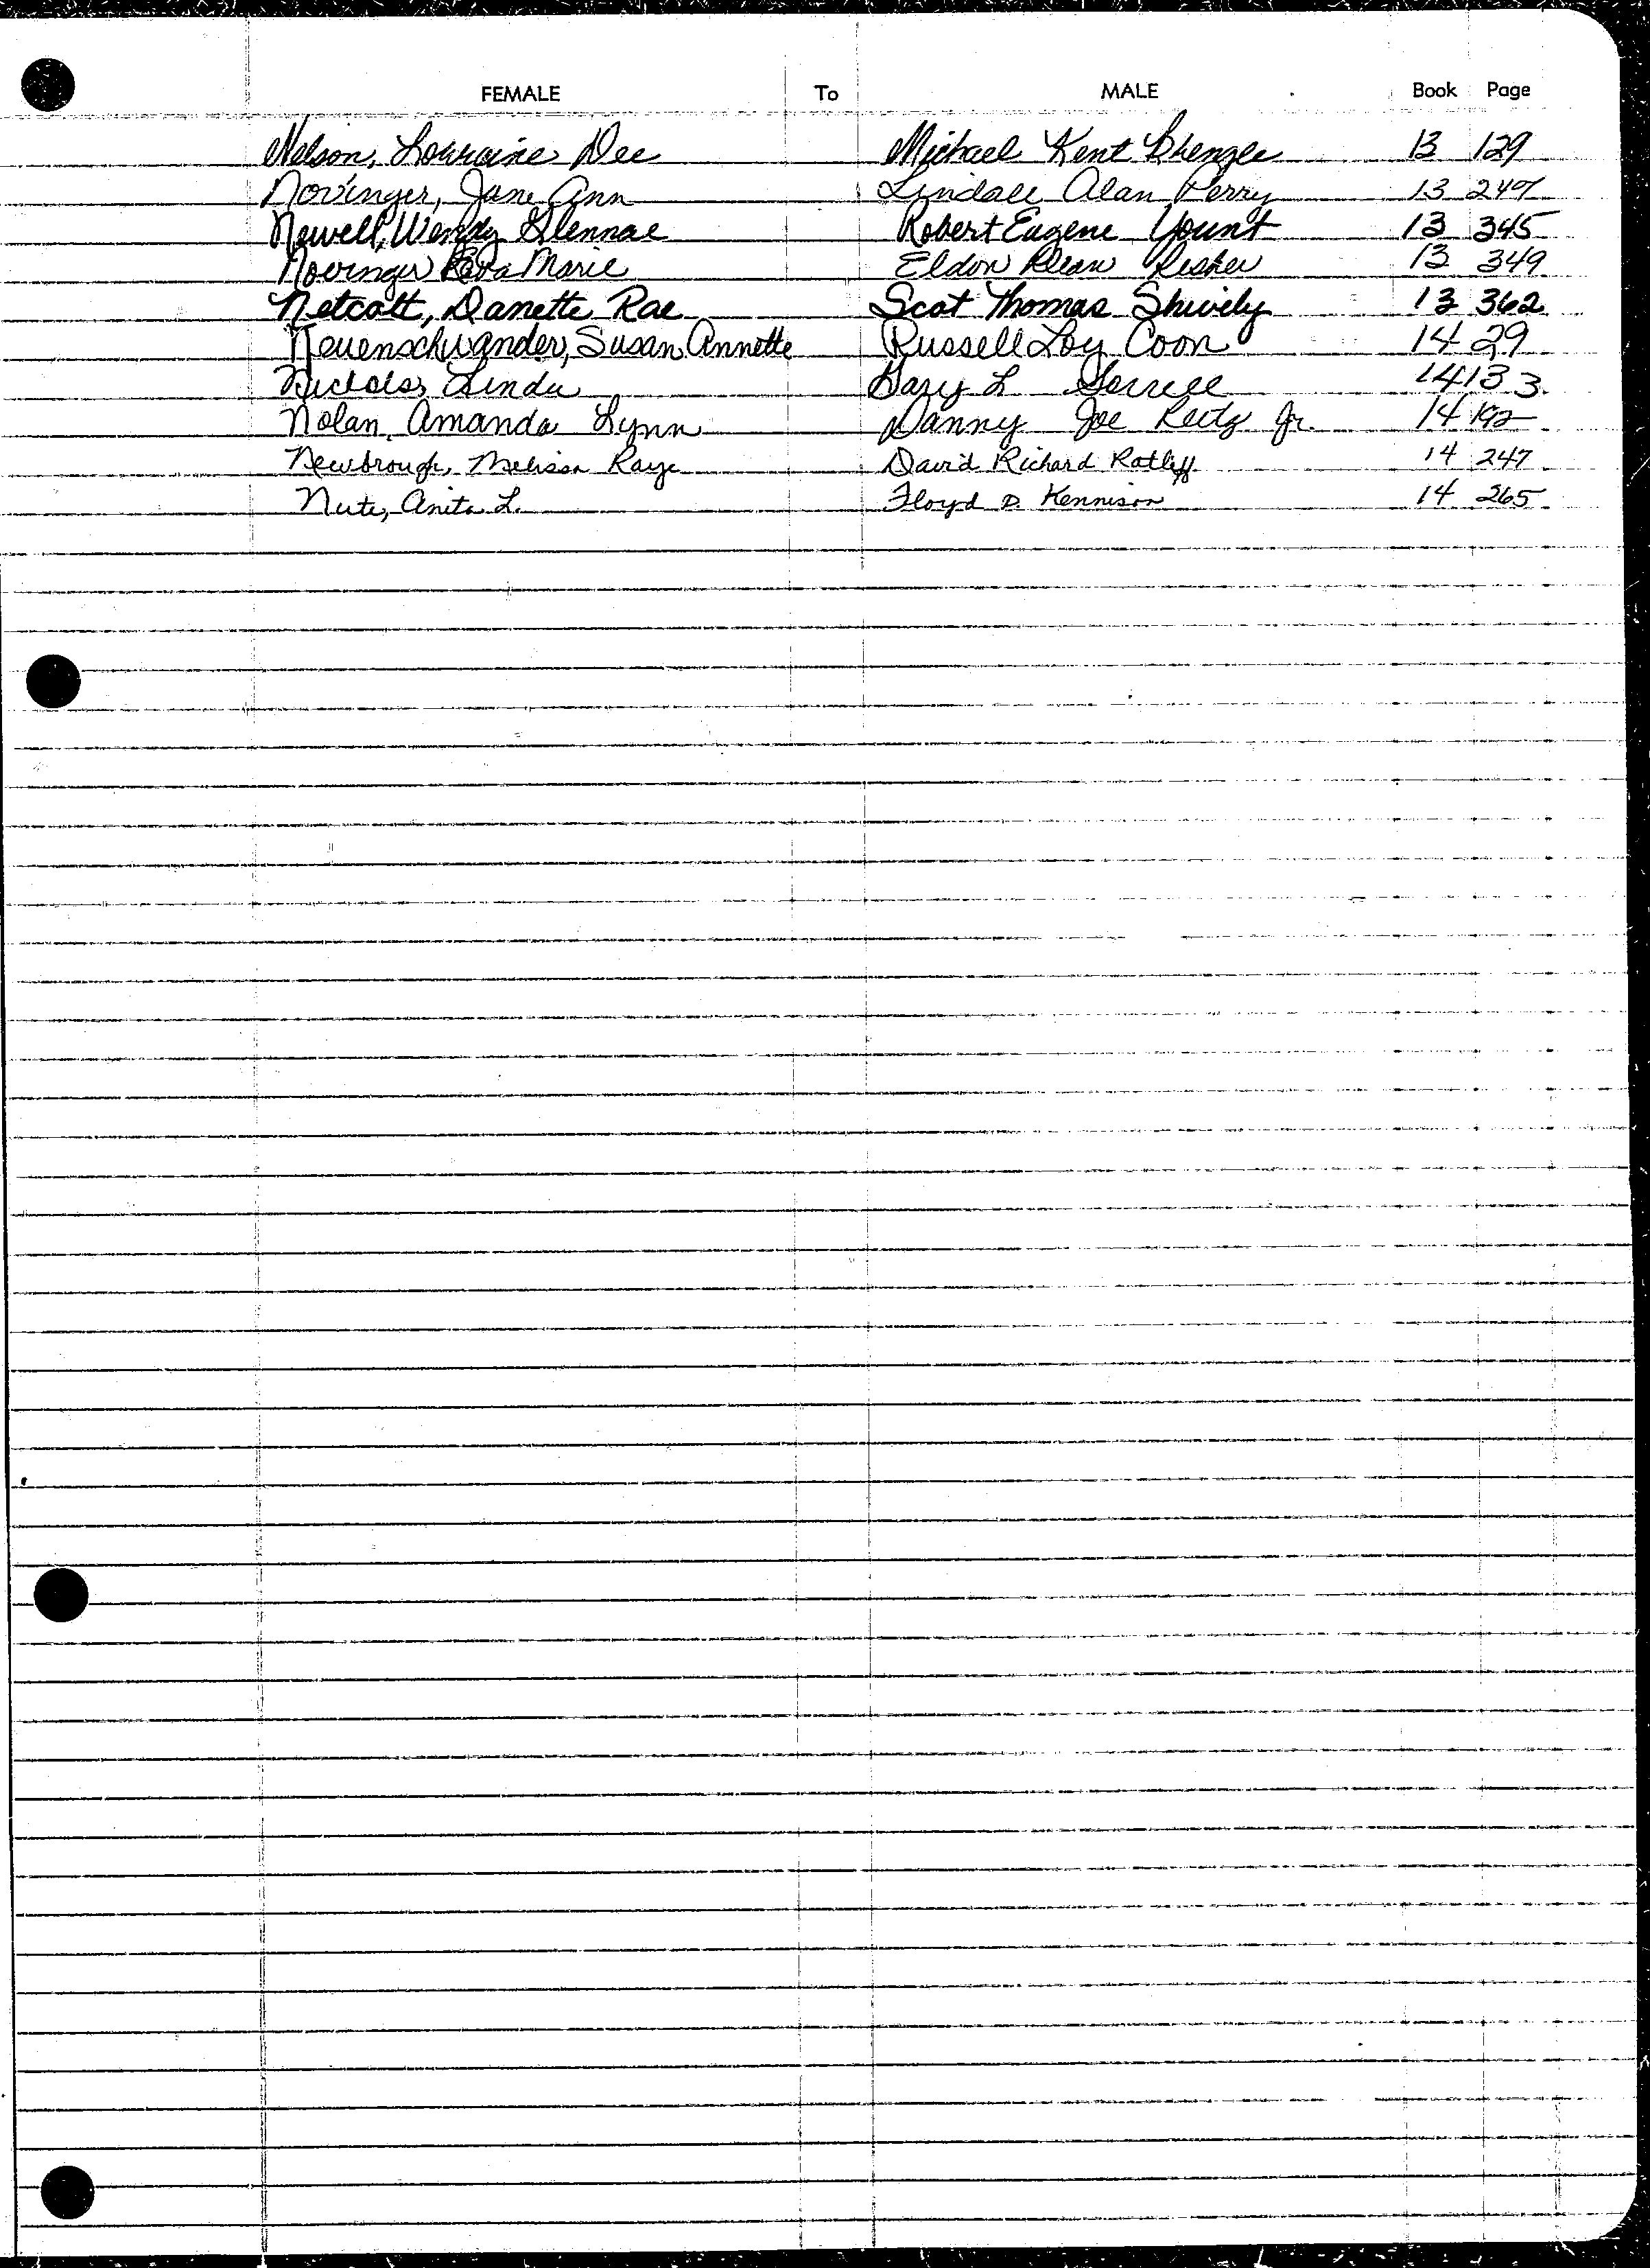 FEMALE To MALE Book Page
Nelson, Lorraine Dee Michael Kent 13 129
Novinger, Jane Ann Lindall Alan Perry 13 247
Newell, Wendy Glennae Robert Eugene Yount 13 345
Novinger Marie Eldon 13 349
Netcott, Danette Rae Scot Thomas Shively 13 362
Neuenschwander, Susan Annette Russell Loy Coon 14 29
Nicholas Linda Gary L 14 133
Nolan, Amanda Lynn Danny Joe Jr. 14 192
Newbrough, Melissa Raye David Richard Ratliff 14 247
Nute, Anita L. Floyd D. Kennison 14 265